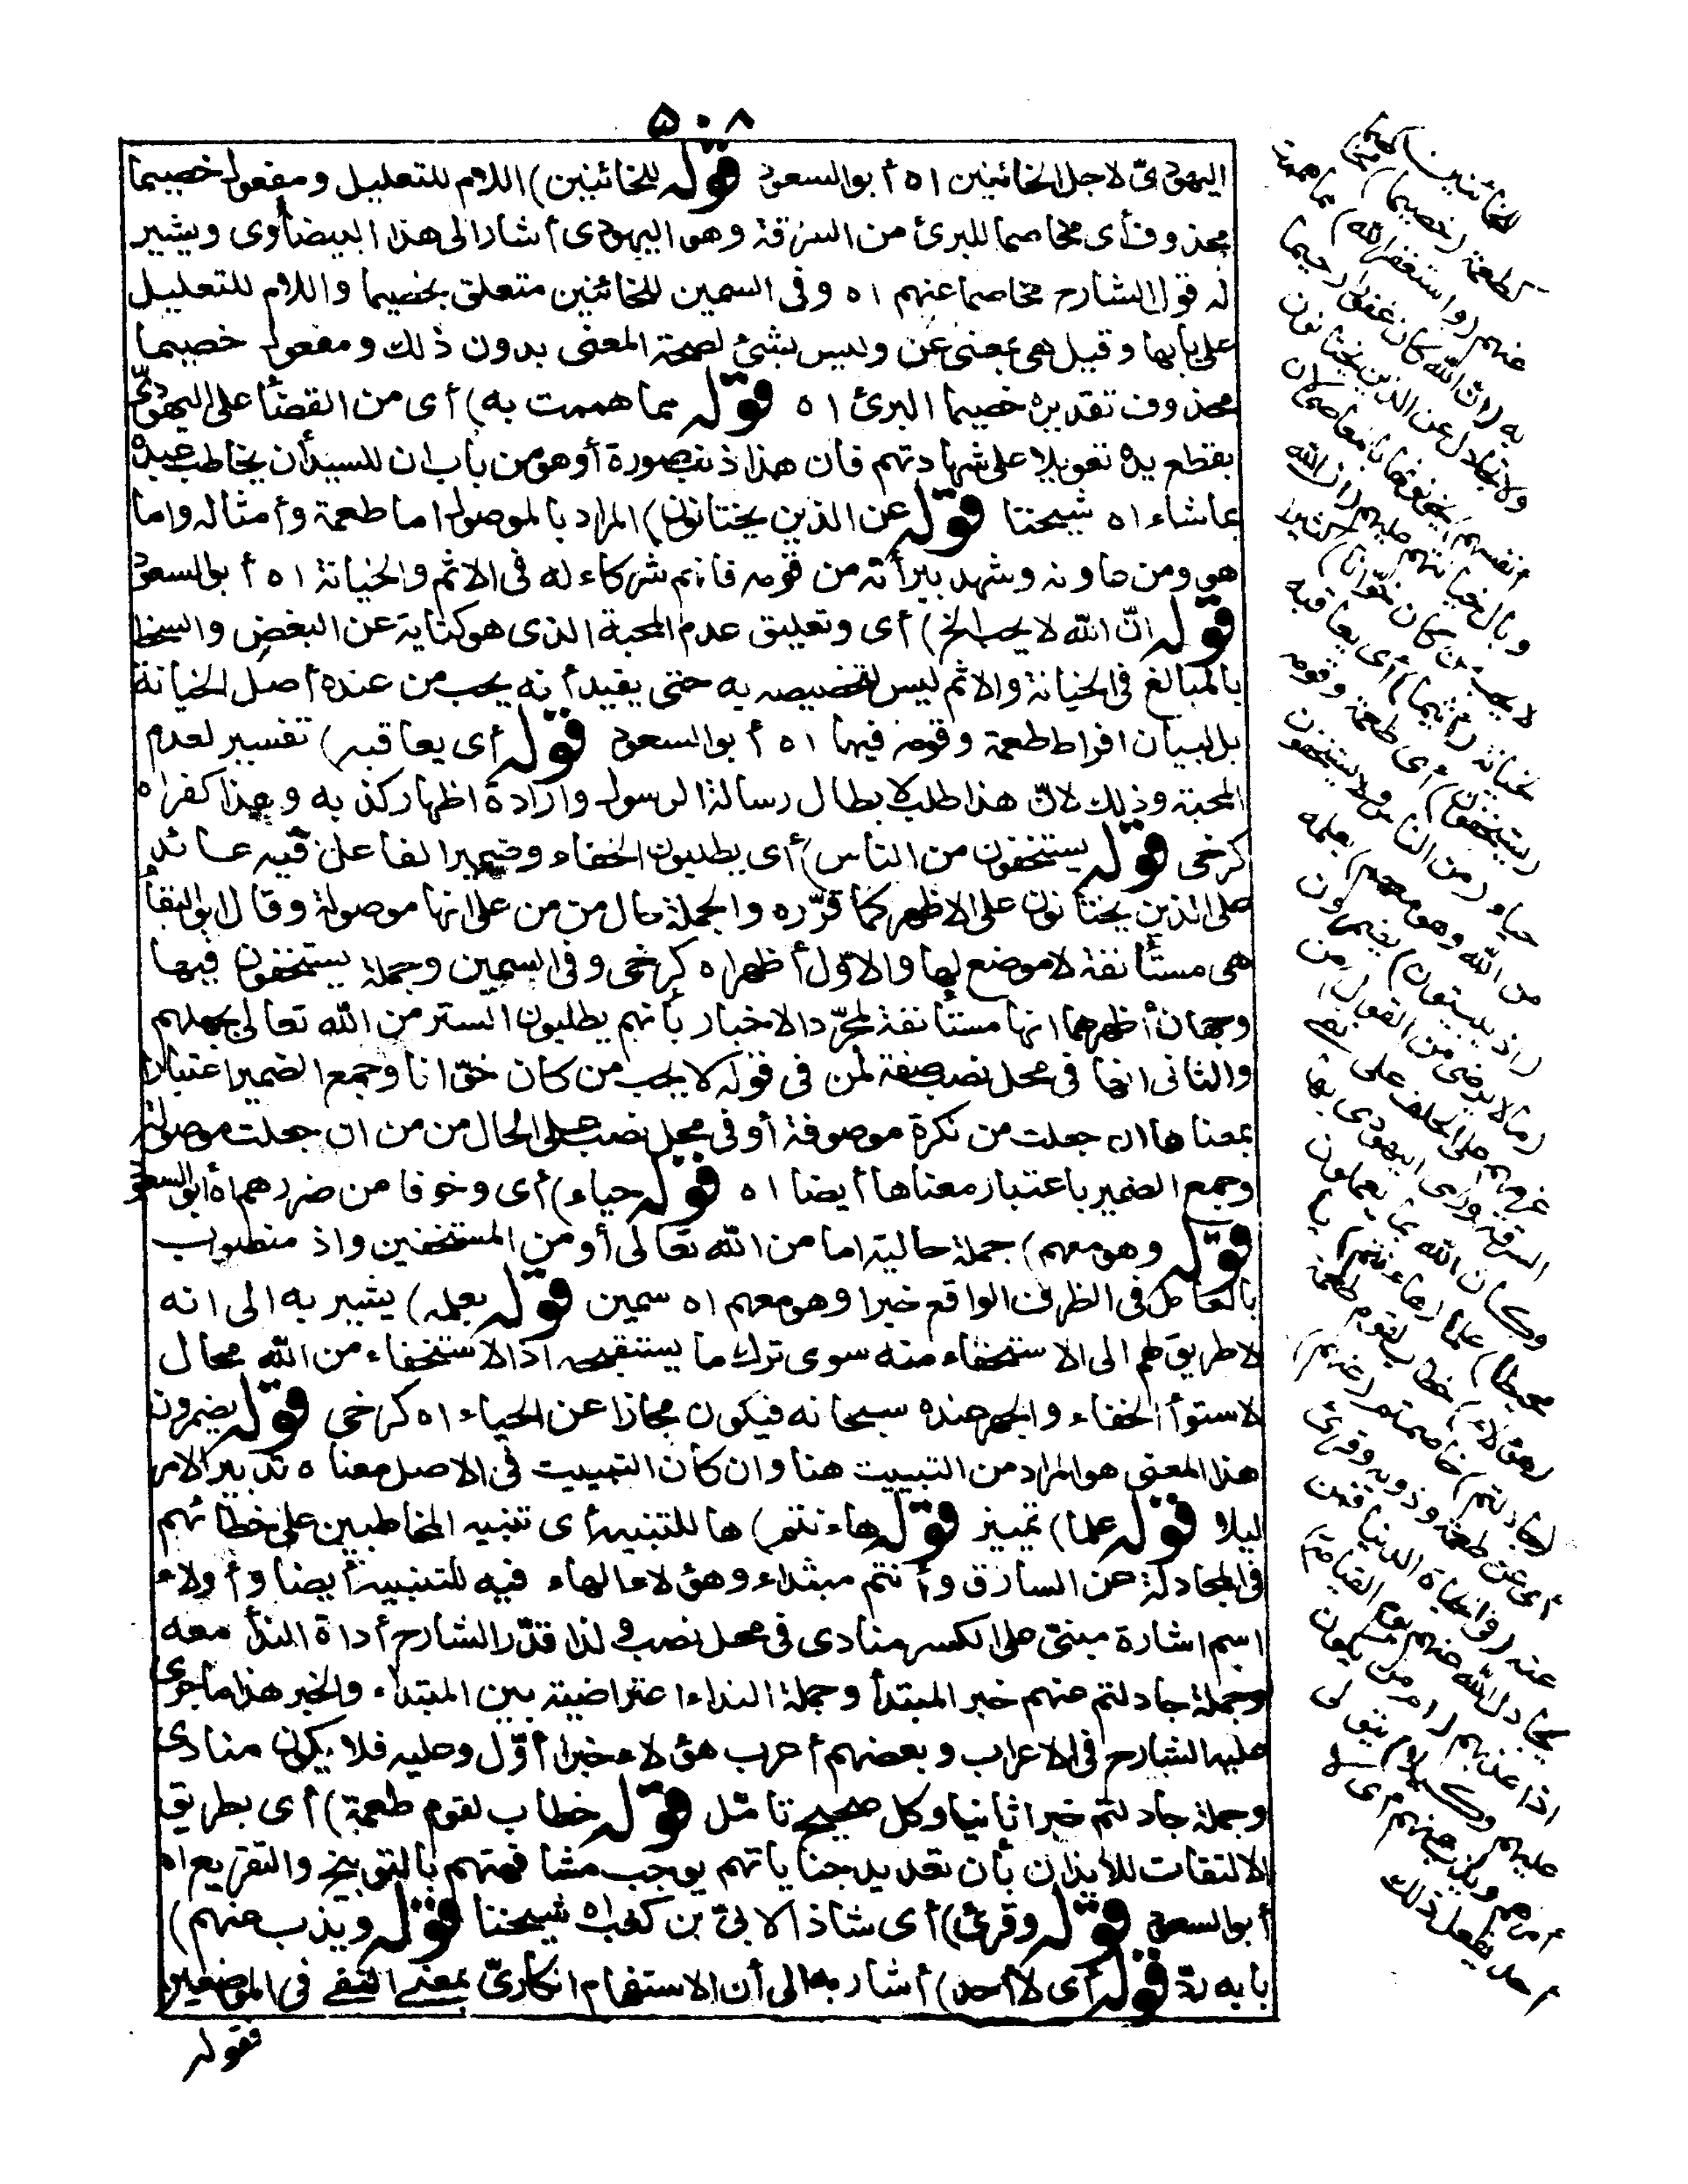 ٥٠٨
اليهودىّ لاجل الخائنين اه أبوالسعود قوله للخائنين) اللام للتعليل ومفعول خصيما
محذوف أى مخاصما للبرئ من السرقة وهو اليهودى أشار الى هذا البيضاوى ويشير
له قول الشارح مخاصما عنهم اه وفى السمين للخائنين متعلق بخصيما واللام للتعليل
على بابها وقيل هى بمعنى عن وليس بشئ لصحة المعنى بدون ذلك ومفعول خصيما
محذوف تقديره خصيما البرئ اه قوله مما هممت به) أى من القضأ على اليهودىّ
بقطع يده تعويلا على شهادتهم فان هذا ذنب صورة أو هو من باب ان للسيد أن يخاطب عبده
بماشاء اه شيخنا قوله عن الذين يختانون) المراد بالموصول اما طعمة وأمثاله واما
هو ومن عاونه وشهد ببرأته من قومه فانهم شركاء له فى الاثم والخيانة اه أبوالسعود
قوله انّ الله لا يحب الخ) أى وتعليق عدم المحبة الذى هو كناية عن البغض والسخط
بالمبالغ فى الخيانة والاثم ليس لتخصيصه به حتى يفيد أنه يحب من عنده أصل الخيانة
بل لبيان افراط طعمة وقومه فيهما اه أبوالسعود قوله أى يعاقبه) تفسير لعدم
المحبة وذلك لانّ هذا طلب لابطال رسالة الرسول وارادة اظهار كذبه وهذا كفر اه
كرخى قوله يستخفون من الناس) أى يطلبون الخفاء وضمير الفاعل فيه عائد
على الذين يختانون على الاظهر كما قرّره والجملة حال من من على انها موصولة وقال ابوالبقأ
هى مستأنفة لا موضع لها والاوّل أظهر اه كرخى وفى السمين وجملة يستخفون فيها
وجهان أظهرهما انها مستأنفة لمجرّد الاخبار بأنهم يطلبون الستر من الله تعالى بجهلهم
والثانى انها فى محل نصب صفة لمن فى قوله لا يحب من كان خوّانا وجمع الضمير اعتبارا
بمعناها ان جعلت من نكرة موصوفة أو فى محل نصب على الحال من من ان جعلت موصولة
وجمع الضمير باعتبار معناها أيضا اه قوله حياء) أى وخوفا من ضررهم اه أبوالسعود
قوله وهو معهم) جملة حالية اما من الله تعالى أو من المستخفين واذ منصوب
بالعامل فى الظرف الواقع خبرا وهو معهم اه سمين قوله بعمله) يشير به الى انه
لا طريق لهم الى الاستخفاء منه سوى ترك ما يستقبحه اذ الاستخفاء من الله محال
لاستوأ الخفاء والجهر عنده سبحانه فيكون مجازا عن الحياء اه كرخى قوله يضمرون
هذا المعنى هو المراد من التبييت هنا وان كان التبييت فى الاصل معناه تدبير الامر
ليلا قوله علما) تمييز قوله هاءنتم) ها للتنبيه أى تنبيه المخاطبين على خطائهم
فى المجادلة عن السارق وأنتم مبتداء وهؤلاء الهاء فيه للتنبيه أيضا وأولاء
اسم اشارة مبنىّ على الكسر منادى فى محل نصب ولذا قدّر الشارح أداة الندأ معه
وجملة جادلتم عنهم خبر المبتدأ وجملة النداء اعتراضية بين المبتداء والخبر هذا ما جرى
عليه الشارح فى الاعراب وبعضهم أعرب هؤلاء خبرا أوّل وعليه فلا يكون منادى
وجملة جادلتم خبرا ثانيا وكل صحيح تامّل قوله خطاب لقوم طعمة) أى بطريق
الالتفات للايذان بأن تعديد جناياتهم يوجب مشافهتهم بالتوبيخ والتقريع اه
أبوالسعود قوله وقرئ) أى شاذا لابىّ بن كعب اه شيخنا قوله ويذب عنهم)
بابه ردّ قوله أى لا أحد) أشار به الى أن الاستفهام انكارىّ بمعنى النفى فى الموضعين
فقوله
للخائنين) كطعمة (خصيما) مخاصما
عنهم (واستغفر الله) مما هممت
به (انّ الله كان غفورا رحيما
ولا تجادل عن الذين يختانون
أنفسهم) يخونونها بالمعاصى لان
وبال خيانتهم عليهم (ان الله
لا يحب من كان خوّانا) كثير
الخيانة (أثيما) أى يعاقبه
(يستخفون) أى طعمة وقومه
حياء (من الناس ولا يستخفون
من الله وهو معهم) بعلمه
(اذ يبيتون) يضمرون
(ما لا يرضى من القول) من
عزمهم على الحلف على نفى
السرقة ورمى اليهودى بها
(وكان الله بما يعملون
محيطا) علما (هاءنتم) يا
(هؤلاء) خطاب لقوم طعمة
(جادلتم) خاصمتم (عنهم)
أى عن طعمة وذويه وقرئ
عنه (فى الحياة الدنيا فمن
يجادل الله عنهم يوم القيامة)
اذا عذبهم (أم من يكون
عليهم وكيلا) يتولى
أمرهم ويذب عنهم أى لا
أحد يفعل ذلك